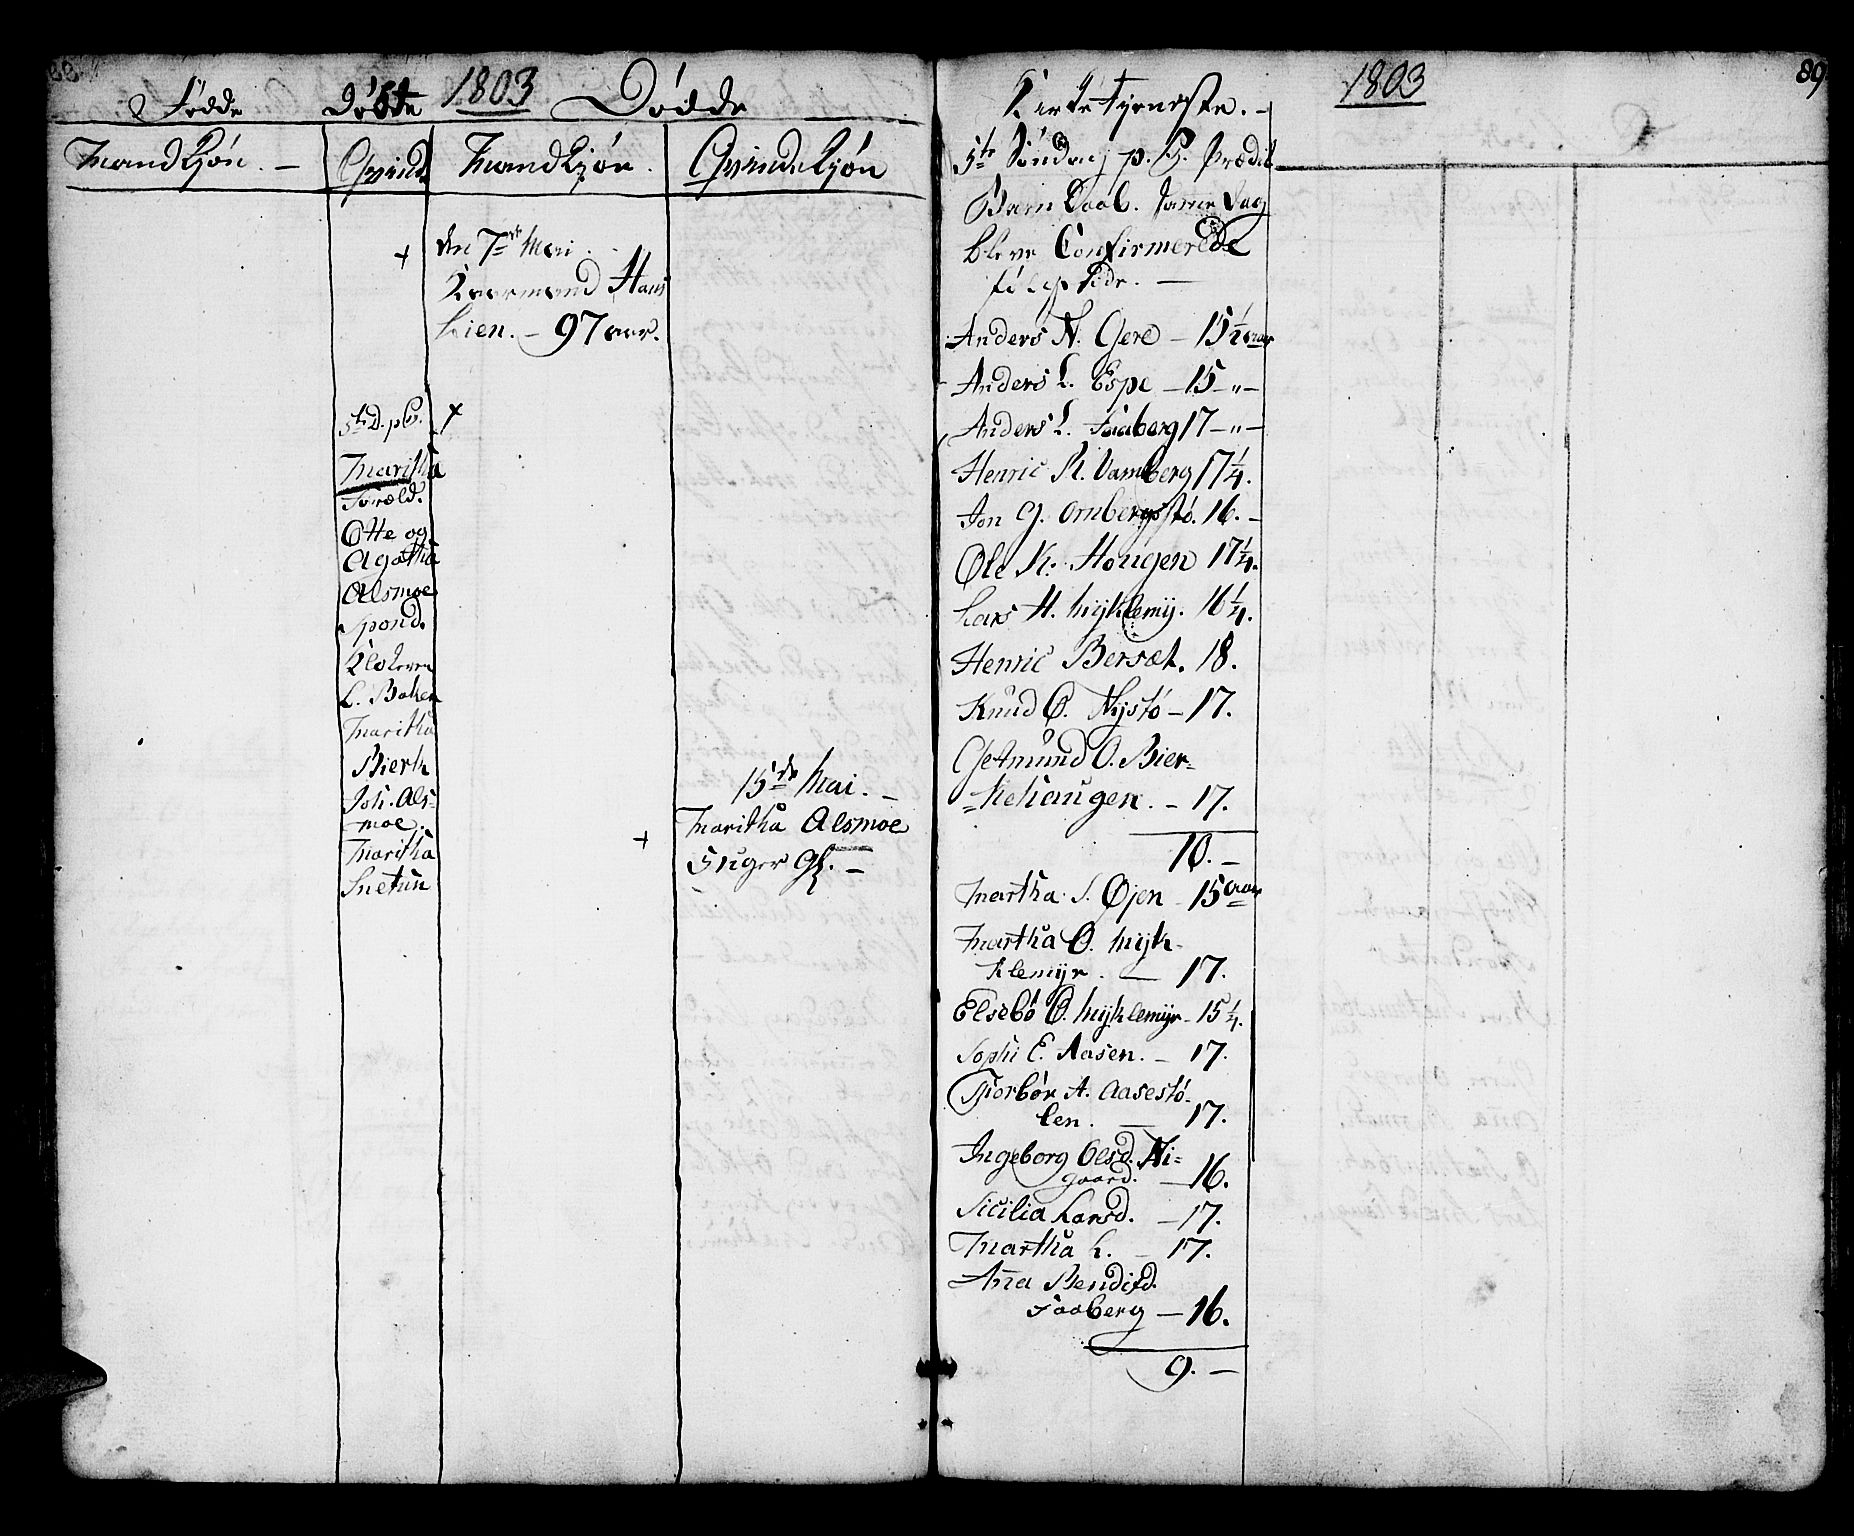 88
Fødde Døbte 1803 Dødde
Mandkjøn. — Qvind. Mandkjøn. Qvindekjøn
+ den 7de Mai.
Kaarmand Hans
Lien. — 97 aar.
5te S. p. P. +
Maritha
Foræld.
Otte og
Agatha
Alsmoe
Spond.
Klokeren
L. Baken
Maritha
Bierk
Joh. Als-
moe.
Maritha
Snetun
15de Mai. —
+ Maritha Alsmoe
Gl. —
Kirketjeneste. — 1803 89
5te Søndag p. P. Prædik
Barn Daab. samme Dag
bleve Confirmerede
følg.
Anders N. Gere — 15 1/2 aar
Anders L. Espe — 15 — " —
Anders L. Faaberg 17 — " —
Henric R. Vamberg 17 1/4.
Jon G. Ornbergstø. 16. —
Ole K. Hougen 17 1/4.
Lars H. Myklemÿ. 16 1/4.
Henric Bersæt. 18.
Knud O. Nystø — 17.
Getmund O. Bier-
=kehaugen. — 17.
10. —
Martha S. Øjen — 15 aar
Martha O. Myk-
klemÿr. — 17.
Elsebø O. Myklemÿr — 15 1/4.
Sophi E. Aasen. — 17.
Torbør A. Aasestø-
len. — 17.
Ingeborg Olsd. Ni=
gaard. — 16.
Sicilia Larsd. — 17.
Martha L. — 17.
Anna Bendixd.
Faaberg — 16.
9. —